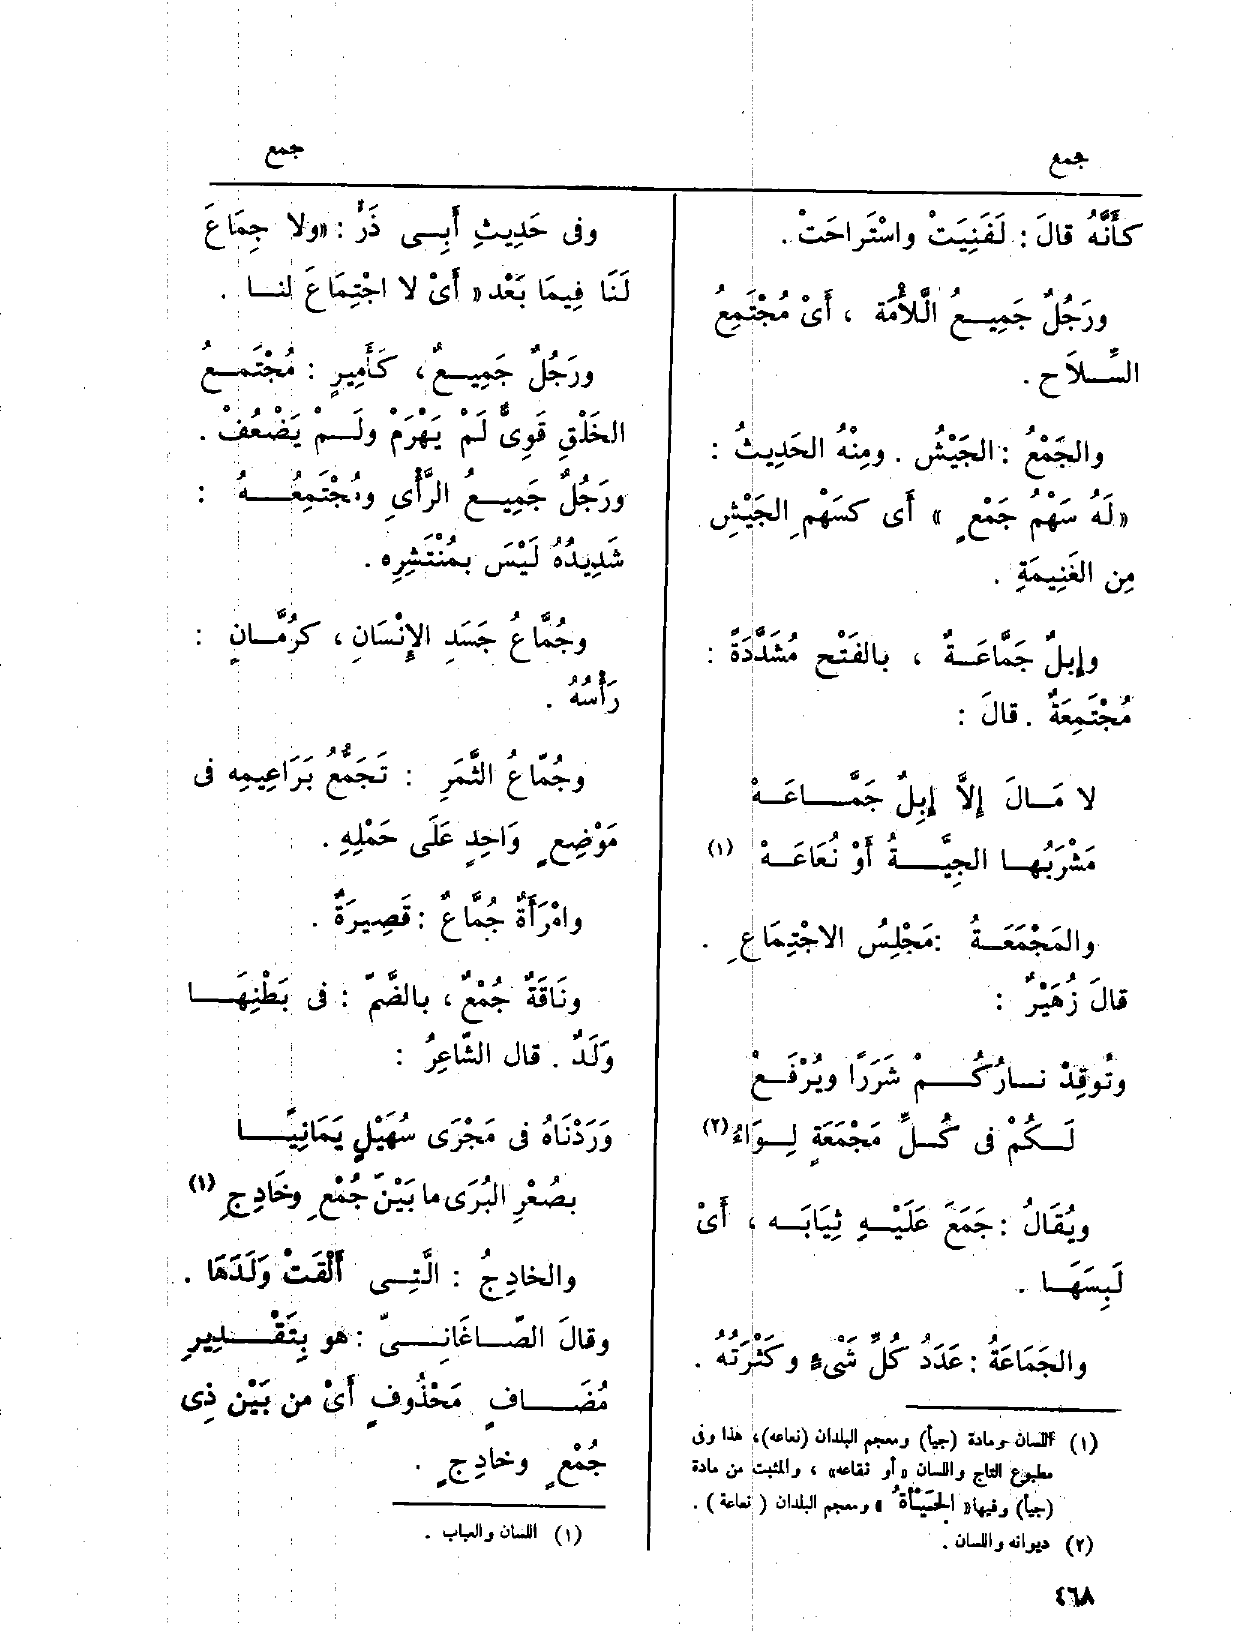 جمع
جمع
كأَنَّهُ قالَ : لَفَنِيَتْ واسْتَراحَتْ .
ورَجُلٌ جَمِيـعُ الَّلأْمَة ، أَىْ مُجْتَمِعُ
السِّـلاَح .
والجَمْعُ : الجَيْشُ . ومِنْهُ الحَدِيثُ :
« لَهُ سَهْمُ جَمْعٍ » أَى كسَهْمِ الجَيْشِ
مِن الغَنِيمَةِ .
وإِبِلٌ جَمَّاعَـةٌ ، بالفَتْح مُشَدَّدَةً :
مُجْتَمِعَةٌ . قالَ :
لا مَـالَ إِلاَّ إِبِلٌ جَمَّـــاعَـهْ
مَشْرَبُهـا الجِيَّـــةُ أَوْ نُعَاعَـهْ (١)
والمَجْمَعَـةُ : مَجْلِسُ الاجْتِمَاعِ .
قالَ زُهَيْرٌ :
وتُوقِدْ نـارُكُـــمْ شَرَرًا ويُرْفَـعْ
لَـكُمْ فى كُـلِّ مَجْمَعَةٍ لِـوَاءُ (٢)
ويُقَالُ : جَمَعَ عَلَيْـهِ ثِيَابَـه ، أَىْ
لَبِسَهَـا .
والجَمَاعَةُ : عَدَدُ كُلِّ شَىْءٍ وكَثْرَتُه .
(١) اللسان ومادة (جيأ) ومعجم البلدان (نعاعه)، هذا وفى
مطبوع التاج واللسان « أو نقاعه » ، والمثبت من مادة
(جيأ) وفيها « الجَيْأَةُ » ومعجم البلدان ( نعاعة ) .
(٢) ديوانه واللسان .
وفى حَدِيثِ أَبِـى ذَرٍّ : «ولا جِمَاعَ
لَنَا فِيمَا بَعْد» أَىْ لا اجْتِمَاعَ لنـا .
ورَجُلٌ جَمِيـعٌ ، كَأَمِيرٍ : مُجْتَمـعُ
الخَلْقِ قَوِىٌّ لَمْ يَهْرَمْ ولَـمْ يَضْعُفْ .
ورَجُلٌ جَمِيـعُ الرَّأْىِ ومُجْتَمِعُـــهُ :
شَدِيدُهُ لَيْسَ بمُنْتَشِرِه .
وجُمَّاعُ جَسَدِ الإِنْسَانِ ، كرُمَّـانٍ :
رَأْسُهُ .
وجُمّاعُ الثَّمَرِ : تَجَمُّعُ بَرَاعِيمِه فى
مَوْضِعٍ وَاحِدٍ عَلَى حَمْلِهِ .
وامْرَأَةٌ جُمَّاعٌ : قَصِيرَةٌ .
ونَاقَةٌ جُمْعٌ ، بالضَّمّ : فى بَطْنِهَـــا
وَلَدٌ . قال الشّاعِرُ :
وَرَدْنَاهُ فى مَجْرَى سُهَيْلٍ يَمَانِيًـــا
بصُعْرِ البُرَى ما بَيْنَ جُمْعٍ وخَادِجِ (١)
والخادِجُ : الَّتِـى أَلْقَتْ وَلَدَهَا .
وقالَ الصّـاغَانِـىّ : هو بِتَقْـــدِيرِ
مُضَـــافٍ مَحْذُوفٍ أَىْ من بَيْن ذِى
جُمْعٍ وخادِجٍ .
(١) اللسان والعباب .
٤٦٨